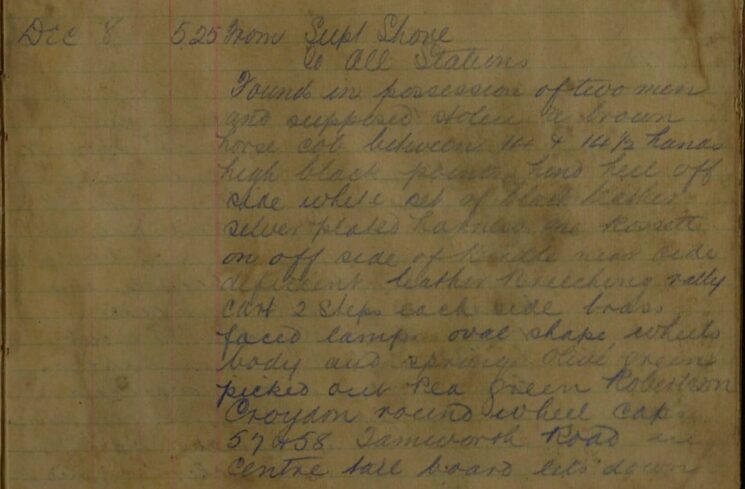 Dec 8 5.25 From Supt Shove
to All Stations
Found in possession of two men
and supposed stolen a brown
horse cob between 14 & 14 1/2 hands
high black points hind heel off
side white set of black leather
silver plated harness one Rosette
on off side of bridle near side
deficient leather Breeching rally
cart 2 Steps each side brass
faced lamps oval shape wheels
body and springs olive green
picked out Pea green Robertson
Croydon round wheel caps
57 & 58 Tamworth Road in
Centre tail board lets down